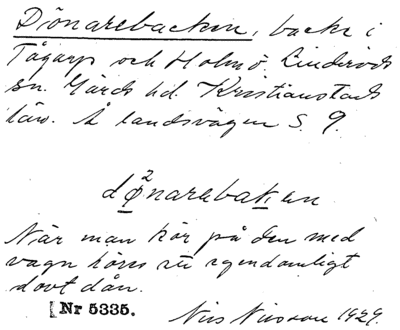 Dönarebacken, backe i
Tågarp och Holmö. Linderöds
sn. Gärds hd. Kristianstads
län. Å landsvägen S. 9.
d²ønarebaken
När man kör på den med
vagn höres ett egendomligt
dovt dån.
[Nr 5335.
Nils Nilsson 1929.